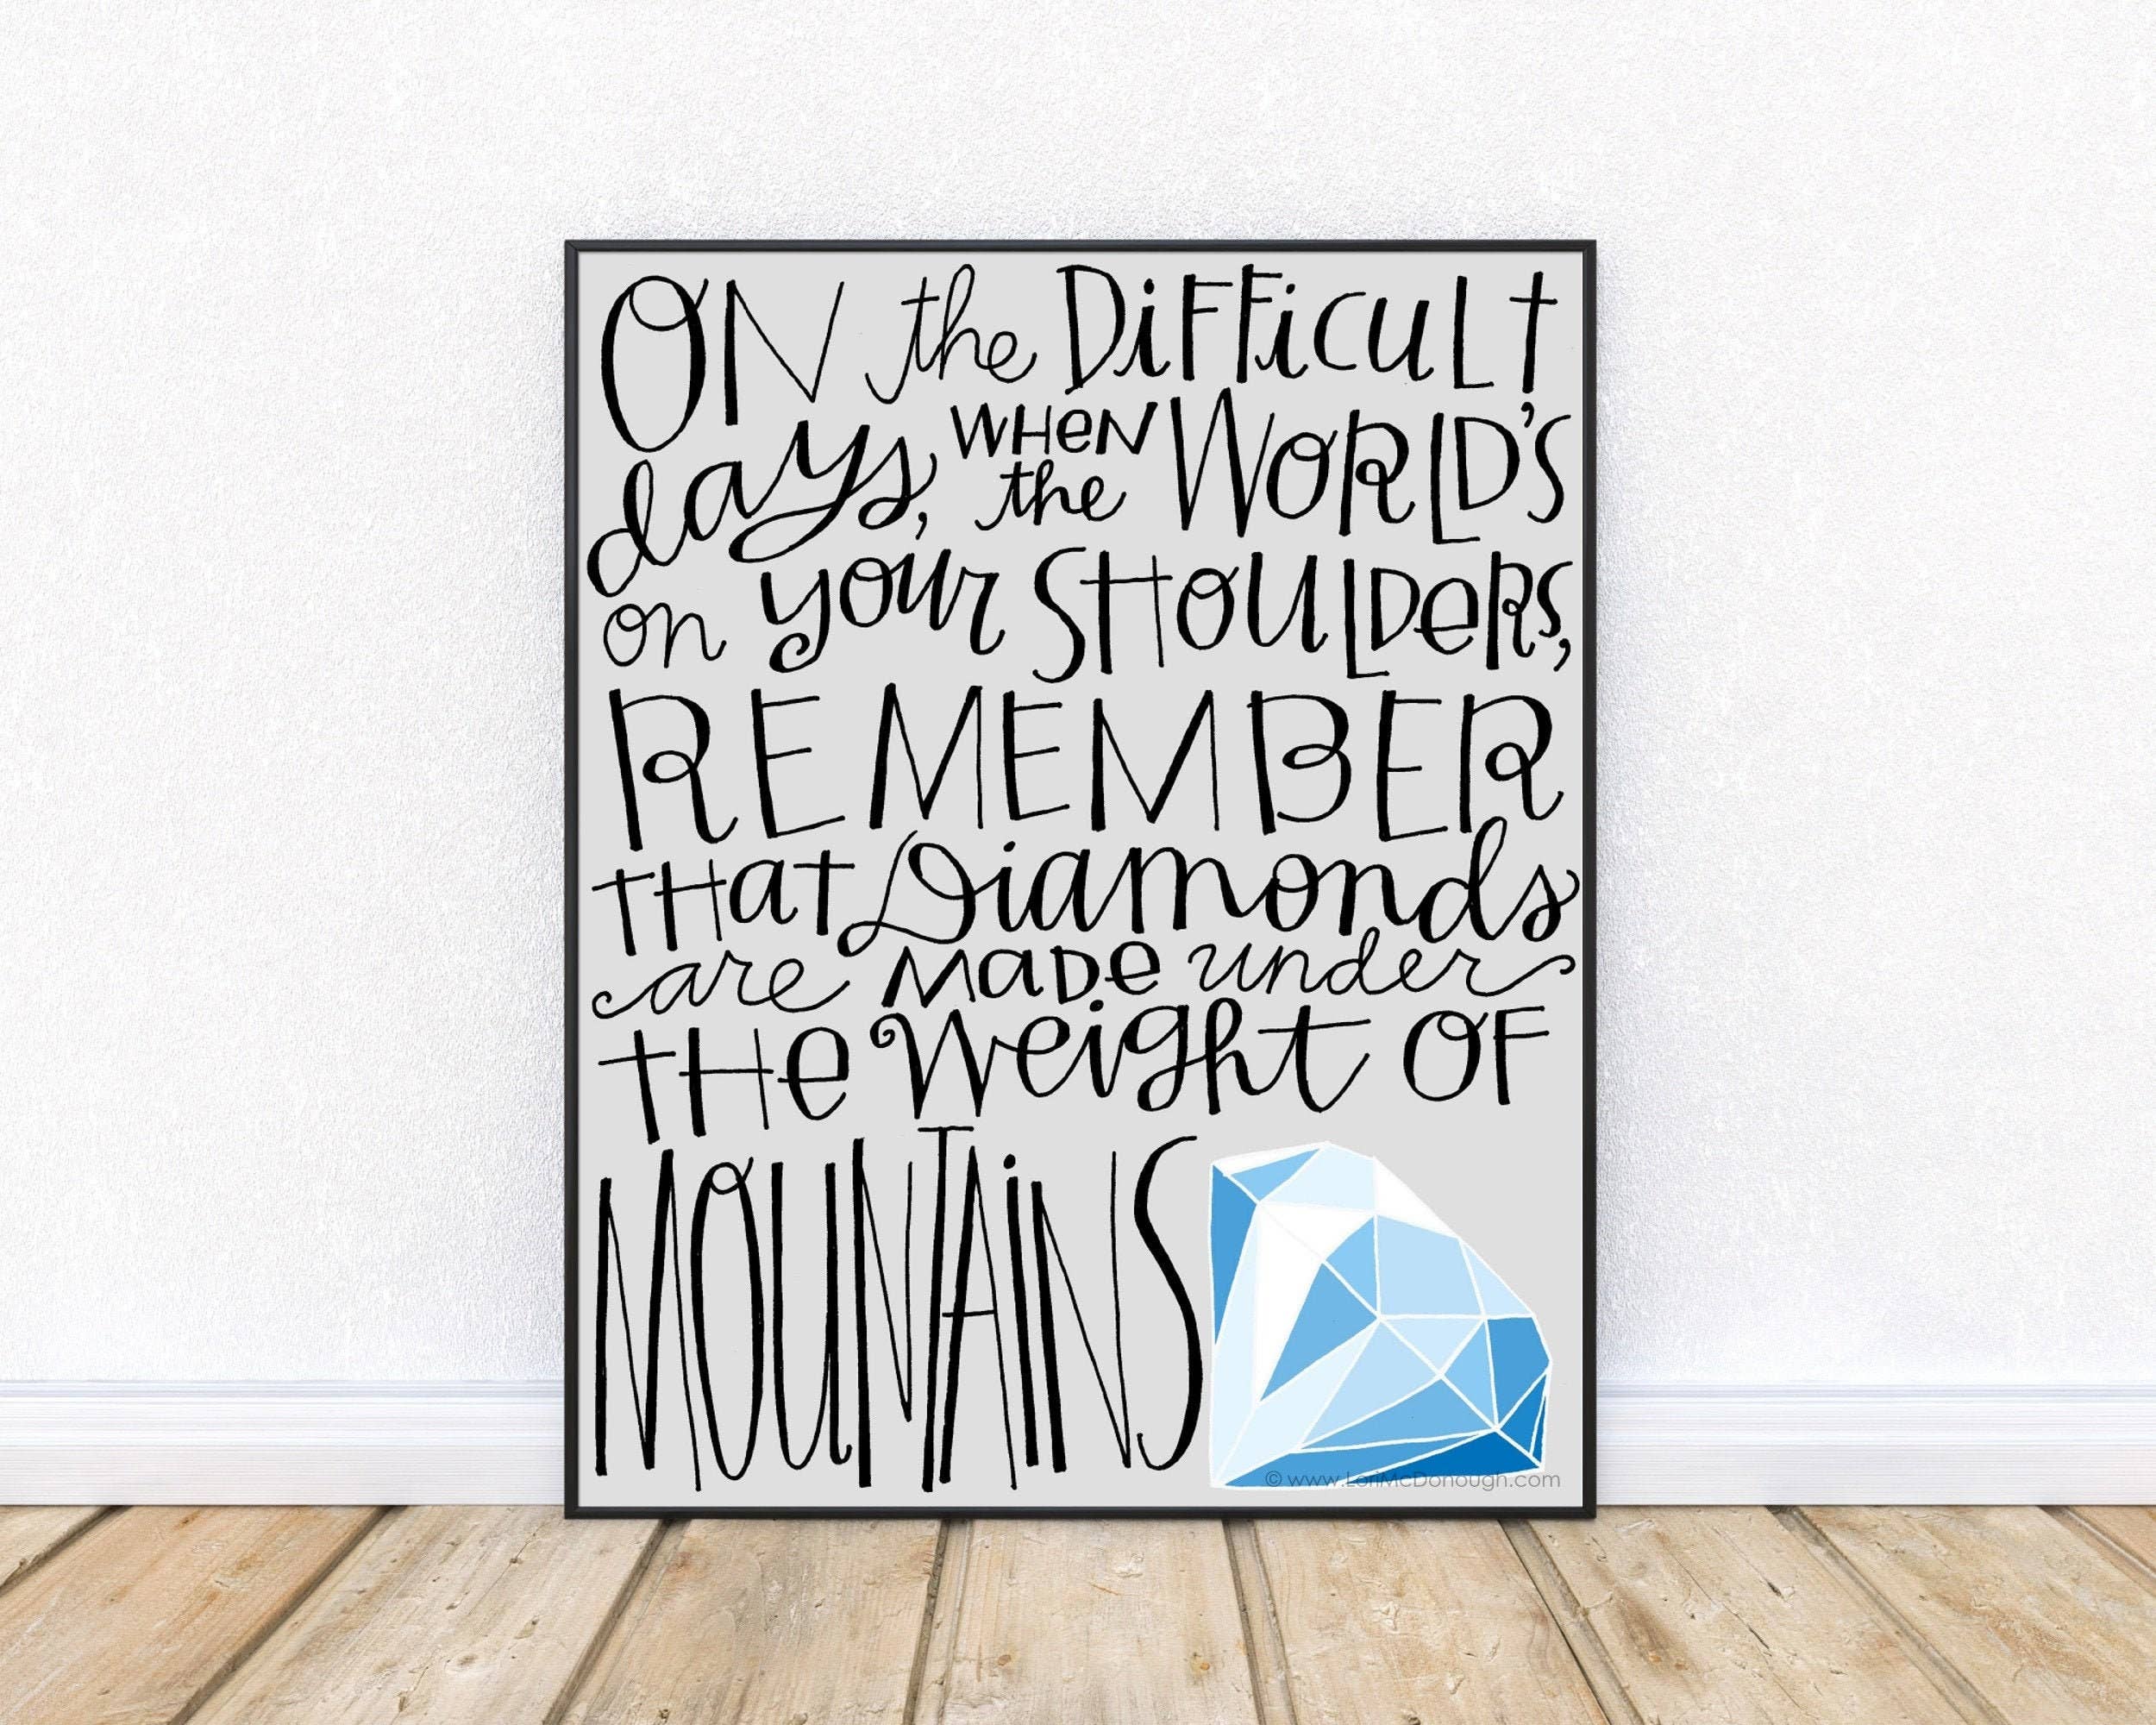 ON the DiFFicuLt
days, WHeN the WORLD'S
on your SHOULDeRS,
REMEMBER
tHat Diamonds
are MaDe under
tHe Weight OF
MOUNTAiNS
© www.LoriMcDonough.com